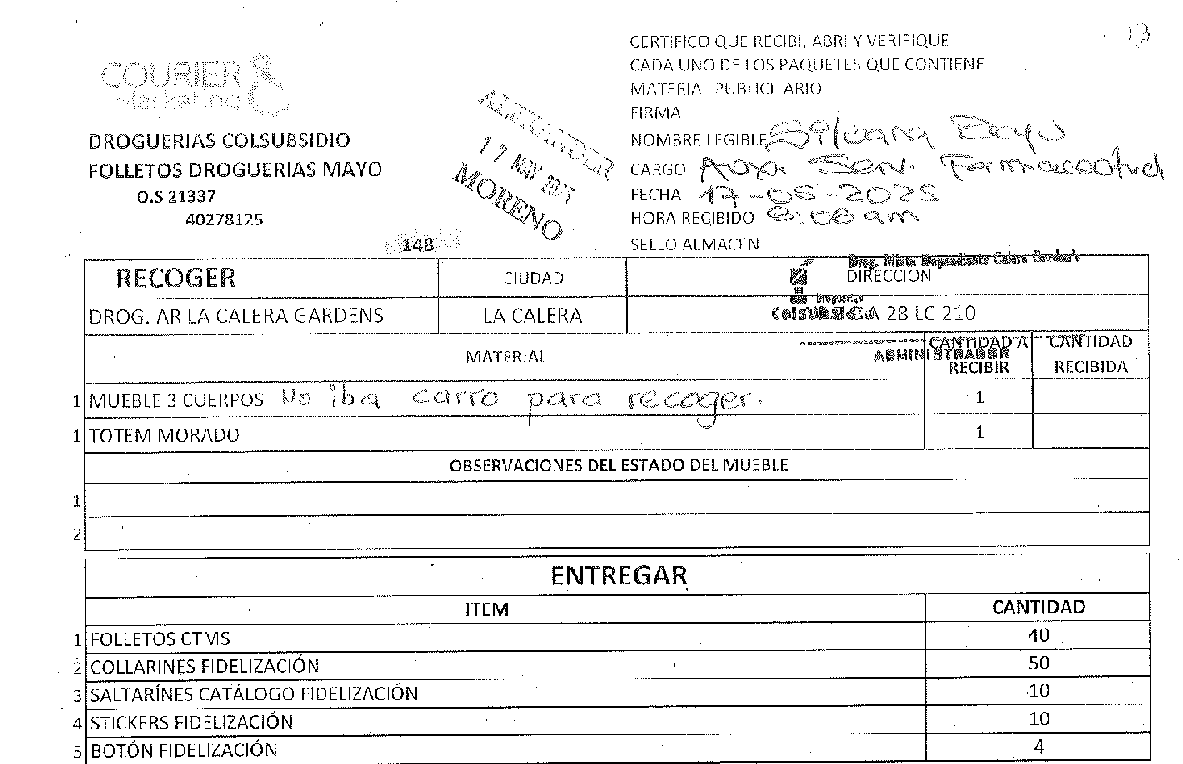 13
CERTIFICO QUE RECIBI, ABRI Y VERIFIQUE
CADA UNO DE LOS PAQUETES QUE CONTIENE
MATERIAL PUBLICITARIO
COURIER
DROGUERIAS COLSUBSIDIO
FOLLETOS DROGUERIAS MAYO
O.S 21337
40278125
148
ALEXANDER
17 MAY 2025
MORENO
FIRMA
NOMBRE LEGIBLE Silvana
CARGO Serv. Farmaceutico
FECHA 17-05-2025
HORA RECIBIDO 8:00 am
SELLO ALMACEN
RECOGER CIUDAD DIRECCION
DROG. AR LA CALERA GARDENS LA CALERA 28 LC 210
COLSUBSIDIO
ADMINISTRADOR
MATERIAL CANTIDAD A RECIBIR CANTIDAD RECIBIDA
1 MUEBLE 3 CUERPOS No iba carro para recoger. 1
1 TOTEM MORADO 1
OBSERVACIONES DEL ESTADO DEL MUEBLE
1
2
ENTREGAR
ITEM CANTIDAD
1 FOLLETOS CTMS 40
2 COLLARINES FIDELIZACIÓN 50
3 SALTARÍNES CATÁLOGO FIDELIZACIÓN 10
4 STICKERS FIDELIZACIÓN 10
5 BOTÓN FIDELIZACIÓN 4